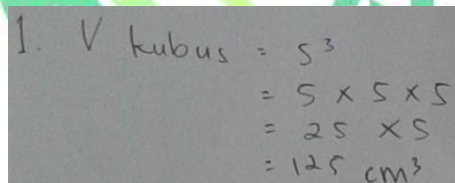 1. V kubus = s³
= 5 × 5 × 5
= 25 × 5
= 125 cm³